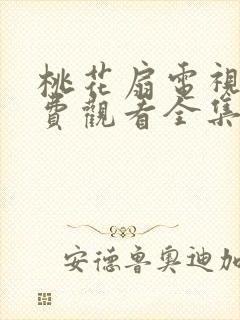 桃花扇電視
費觀看全集
安德魯奧迪加